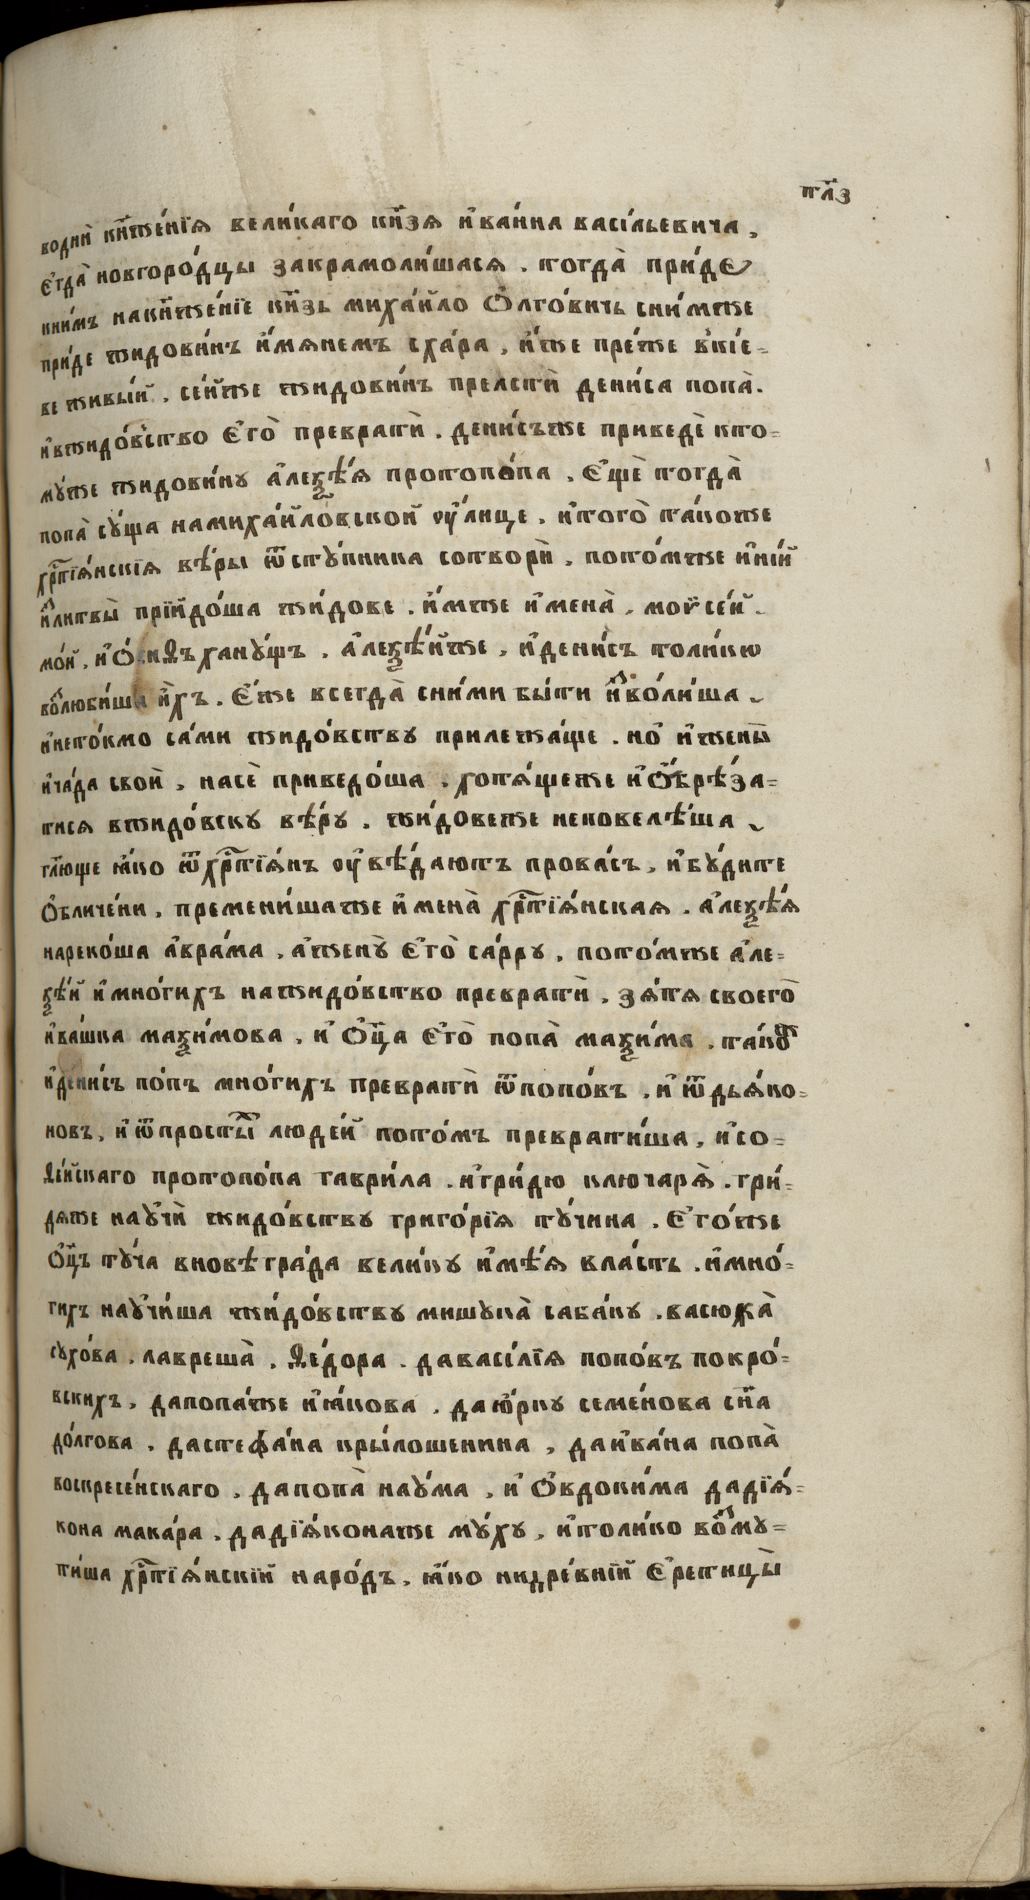 тл҃з
воднѝ кн҃же́нїѧ вели́каго кн҃зѧ и҆ва́нна васі́льевича ,
є҆гда̀ новгоро́дцы закрамоли́шасѧ . тогда̀ прї́де
кни́мъ накн҃же́нїе кн҃зь миха́йло ѻ҆лго́вичь сни́мже
прї́де жидови́нъ и҆́мѧнемъ сха́ра , и҆́же пре́же в̾кі́е=
ве живы́й . се́йже жидови́нъ прелстѝ дени́са попа̀ .
и҆вжидо́в̾ство є҆го̀ превратѝ . дени́съже приведѐ кто=
мꙋ́же жидови́нꙋ а҆леѯѣ́ѧ протопо́па , є҆щѐ тогда̀
попа̀ сꙋ́ща намиха́йловской ᲂу҆́лице . и҆того̀ та́коже
хрⷭ҇тїѧ́нскїѧ вѣ́ры ѿстꙋ́пника сотворѝ . пото́мже и҆ні́й
и҆ⷥлитвы̀ прїйдо́ша жи́дове . и҆́мже и҆мена̀ . мої̈се́й .
мо́й , и҆ ѻ҆́сиѳъ ханꙋ́шъ . а҆леѯѣ́йже , и҆дени́съ толи́кѡ
воⷥлюби́ша и҆̀хъ . є҆́же всегда̀ сни́ми бы́ти и҆ⷥво́лиша
и҆нето́кмо са́ми жидо́вствꙋ прилежа́ще . но̀ и҆ жены̀
и҆ча́да своѝ , насѐ приведо́ша . хотѧ́щеже и҆ ѻ҆брѣ́за=
тисѧ вжидо́вскꙋ вѣ́рꙋ . жи́довеже неповелѣ́ша
гл҃юще ꙗ҆́ко ѿхрⷭ҇тїѧ́нъ ᲂу҆вѣ́даютъ прова́съ , и҆бꙋ́дите
ѻ҆бличе́ни . премени́шаже и҆мена̀ хрⷭ҇тїѧ́нскаѧ . а҆леѯѣ́ѧ
нареко́ша а҆вра́ма , а҆женꙋ̀ є҆го̀ са́ррꙋ , пото́мже а҆ле=
ѯѣ́й и҆мно́гихъ нажидо́вство превратѝ , зѧ́тѧ своего̀
и҆ва́шка маѯи́мова , и҆ ѻ҆ц҃а̀ є҆го̀ попа̀ маѯи́ма . та́коⷤ
и҆дени́съ по́пъ мно́гихъ превратѝ ѿпопо́въ . и҆ ѿдьѧ́ко=
новъ , и҆ ѿпросты́ⷯ люде́й пото́мъ преврати́ша , и҆со=
ѳі́йскаго протопо́па гаврі́ла . и҆гри́дю ключарѧ̀ . гри́=
дѧже наꙋчѝ жидо́вствꙋ григо́рїѧ тꙋ́чина . є҆го́же
ѻ҆ц҃ъ тꙋ́ча вновѣ́гра́да вели́кꙋ и҆мѣ́ѧ вла́сть . и҆мно́=
гихъ наꙋчи́ша жидо́вствꙋ мишꙋка̀ саба́кꙋ . васюка̀
сꙋхо́ва . лавреша̀ . ѳе́дора . давасі́лїѧ попо́въ покро́=
вскихъ , дапопа́же и҆ꙗ҆́кова . даю҆́ркꙋ семе́нова сн҃а
до́лгова . дастефа́на кры́лошенина , даи҆ва́на попа̀
воскресе́нскаго . дапопа̀ наꙋ́ма , и҆ ѻ҆вдоки́ма дадїѧ́=
кона мака́ра . дадїѧ́конаже мꙋ́хꙋ , и҆толи́ко воⷥмꙋ=
ти́ша хрⷭ҇тїѧ́нскїй наро́дъ , ꙗ҆́ко нидре́внїй є҆ретицы̀